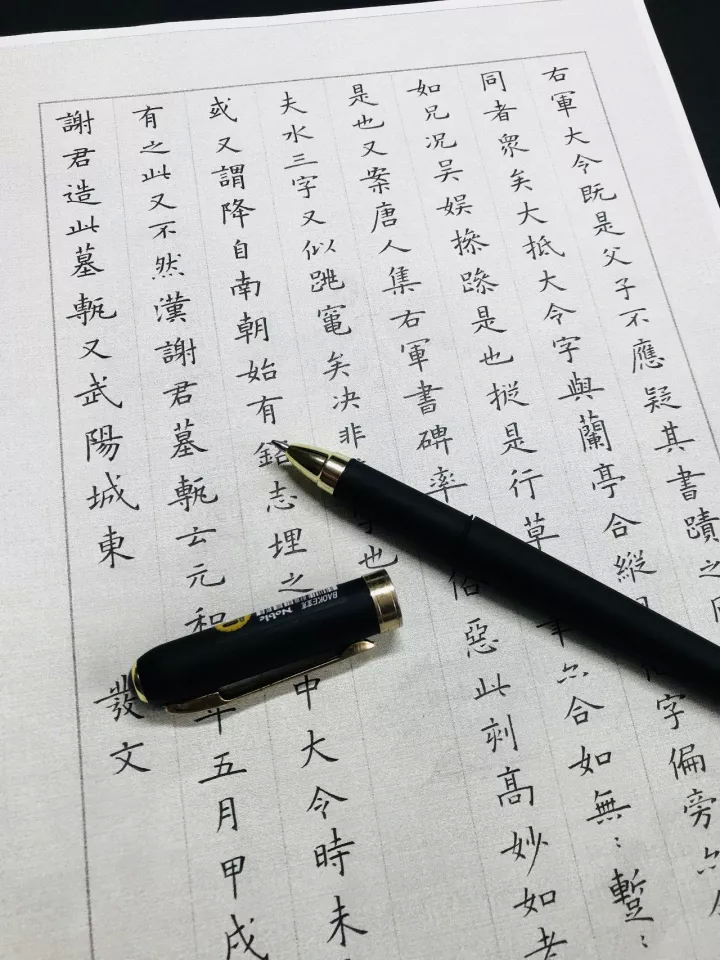 右軍大令既是父子不應疑其書蹟之
同者衆矣大抵大令字與蘭亭合縱字偏旁亦
如兄况吴娱是也摐是行草亦合如無〻蹔〻
是也又案唐人集右軍書碑率俗惡此刻高妙如者
夫水三字又似跳竃矣决非字也
或又謂降自南朝始有銘志埋之申大令時未
有之此又不然漢謝君墓甎云元和年五月甲戌
謝君造此墓甎又武陽城東發文
BAOKE宝克
Noble